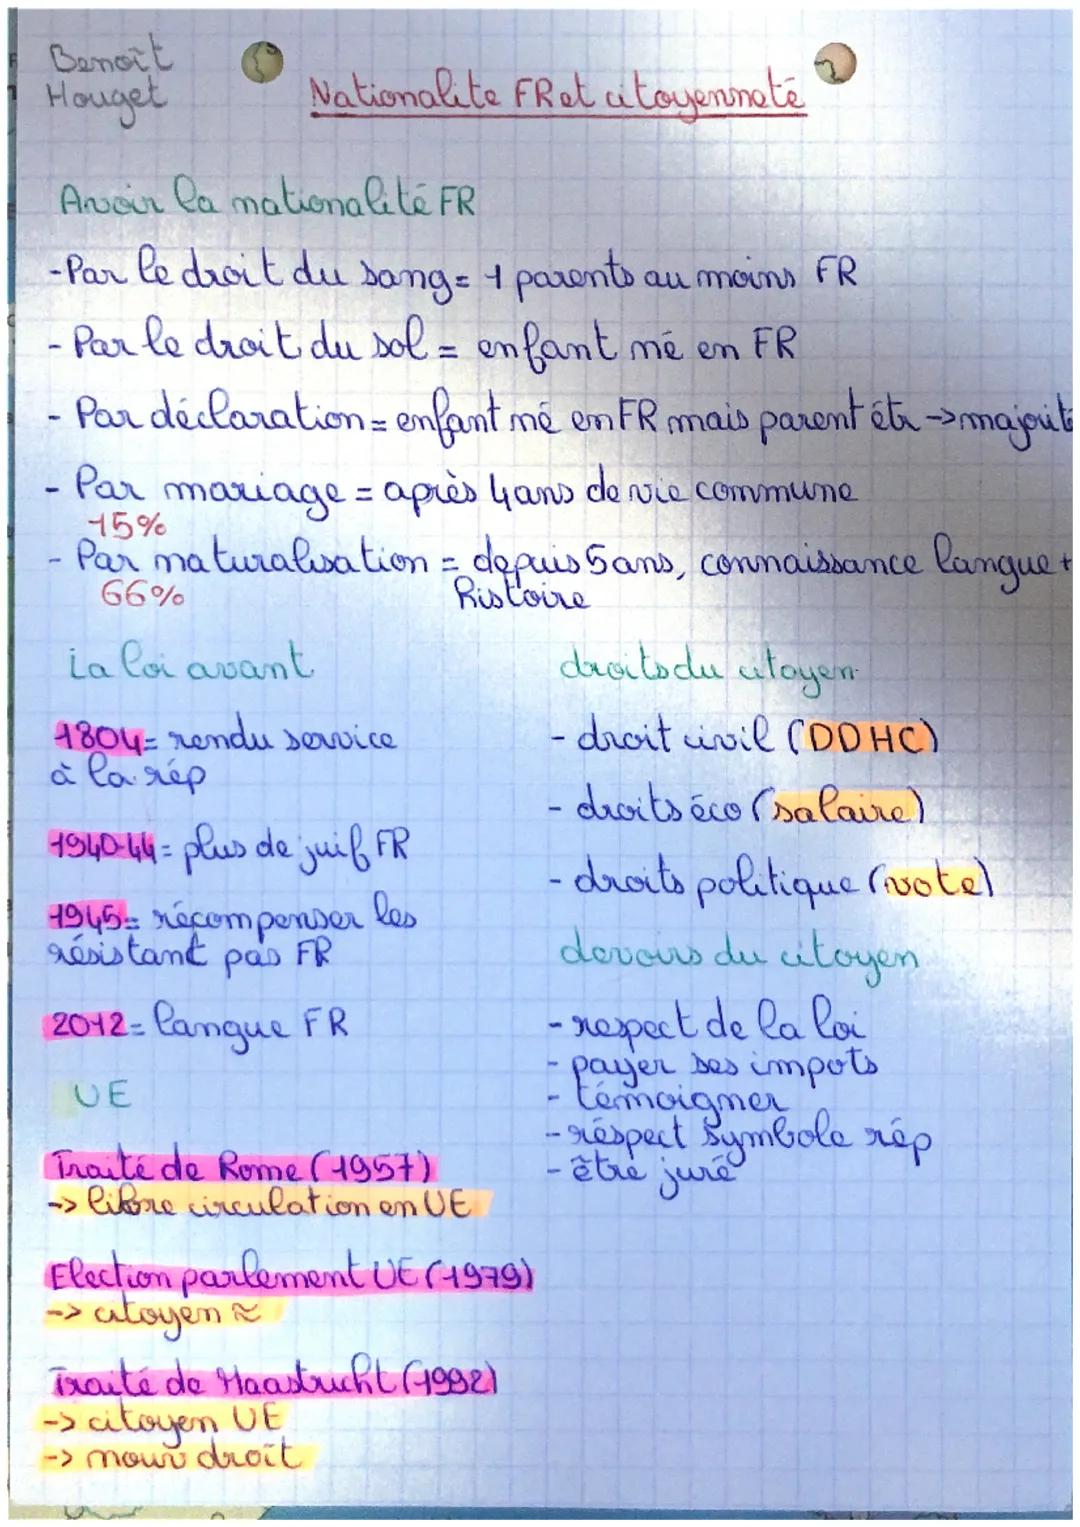 Benoît
Houget
Nationalite FR et citoyenneté
Avoir la nationalité FR
- Par le droit du sang = 1 parents au moins FR
- Par le droit du sol = enfant né en FR
- Par déclaration = enfant né en FR mais parent étr -> majorité
- Par mariage = après 4 ans de vie commune
15%
- Par naturalisation = depuis 5 ans, connaissance langue +
66% histoire
La loi avant
1804 = rendu service
à la rép
1940-44 = plus de juif FR
1945 = récompenser les
résistant pas FR
2012 = langue FR
UE
Traité de Rome (1957)
-> libre circulation en UE
Election parlement UE (1979)
-> citoyen ≈
Traité de Maastricht (1992)
-> citoyen UE
-> nouv droit
droits du citoyen
- droit civil (DDHC)
- droits éco (salaire)
- droits politique (vote)
devoirs du citoyen
- respect de la loi
- payer ses impots
- témoigner
- réspect symbole rép
- être juré